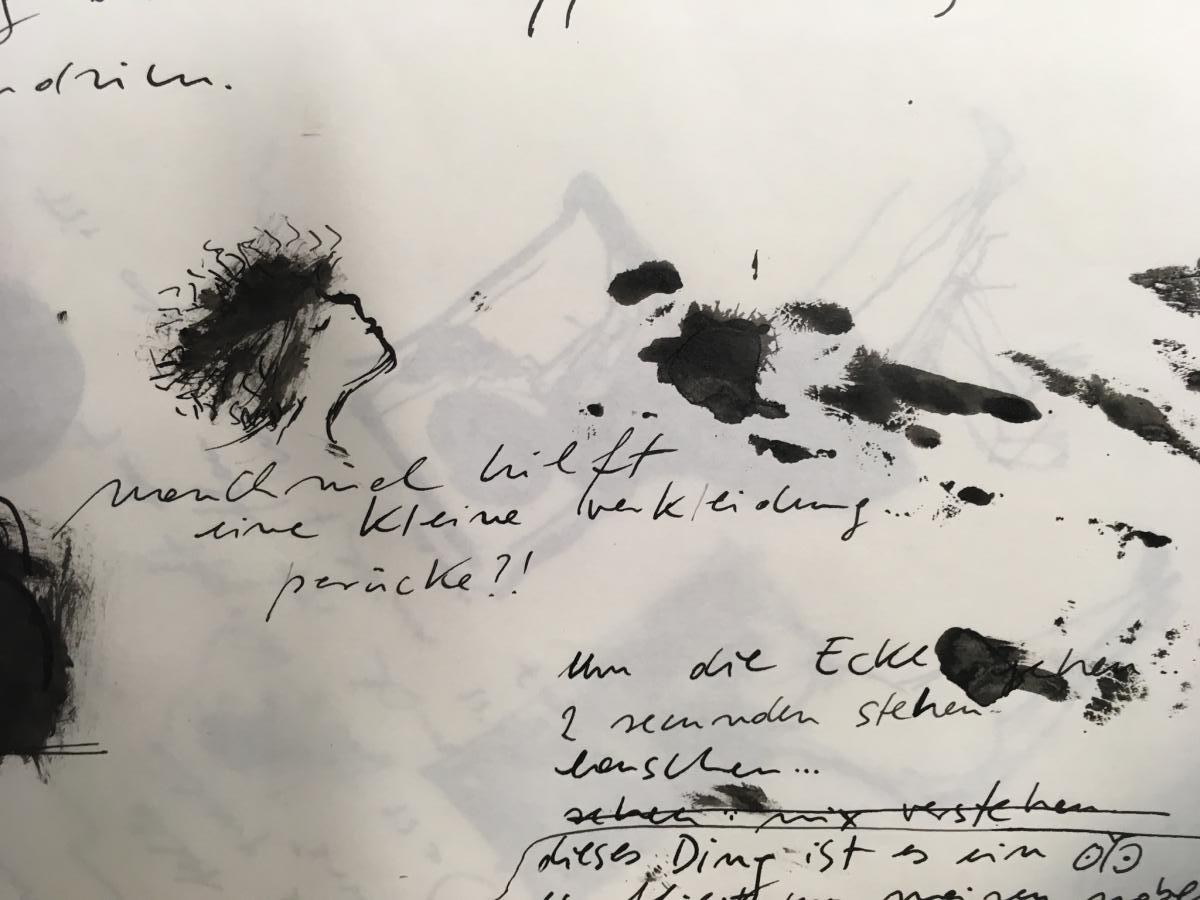 manchmal hilft
eine kleine verkleidung..
perücke?!
Um die Ecke gehen..
2 secunden stehen
lauschen...
sehen.. nix verstehen
dieses Ding ist es ein